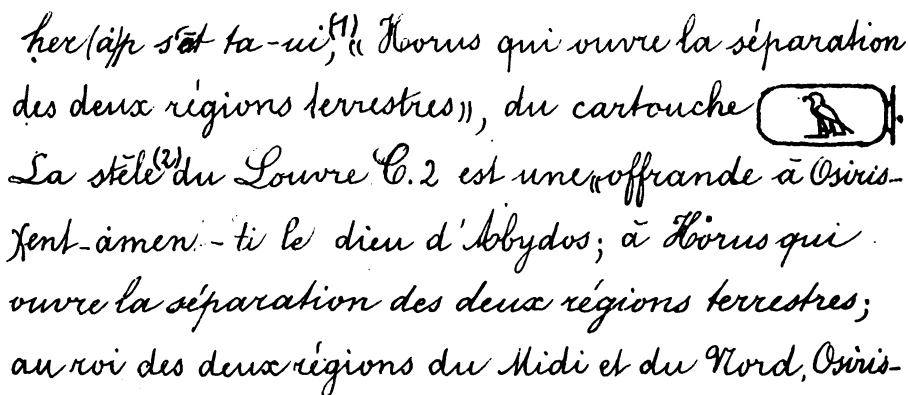 her(à)p sét ta-ui,(1) « Horus qui ouvre la séparation
des deux régions terrestres», du cartouche
La stèle(2) du Louvre C.2 est une «offrande à Osiris-
χent-àmen-ti le dieu d'Abydos; à Horus qui
ouvre la séparation des deux régions terrestres;
au roi des deux régions du Midi et du Nord, Osiris-